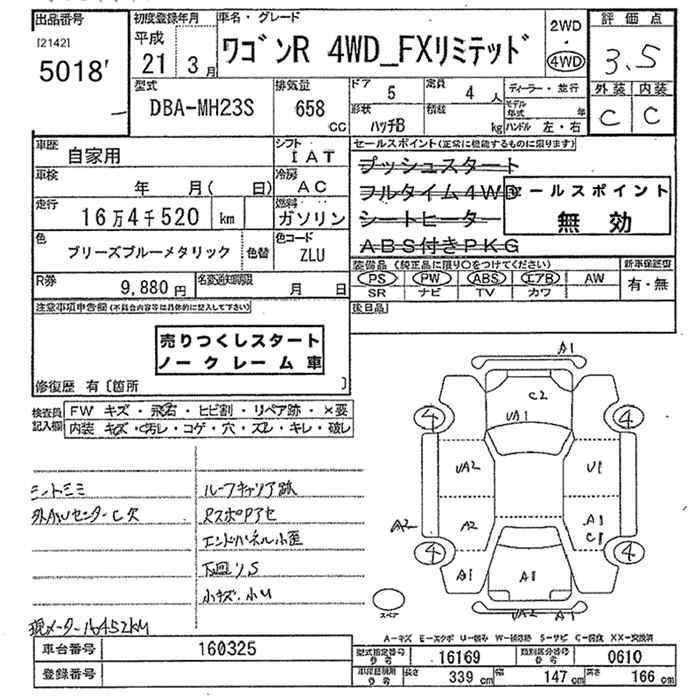 出品番号
[2142]
5018
初度登録年月
平成
21 3月
車名・グレード
ワゴンR 4WD_FXリミテッド
2WD
・
4WD
評価点
3.5
外装 内装
C C
型式
DBA-MH23S
排気量
658 CC
ドア 5
定員 4 人
形状 ハッチB
積載 kg
ディーラー・並行
モデル年式 年
ハンドル 左・右
車歴 自家用
シフト IAT
車検 年 月( 日)
冷房 AC
走行 16万4千520 km
燃料 ガソリン
色 ブリーズブルーメタリック
色替
色コード ZLU
R券 9,880円
名変通知期限 月 日
セールスポイント(正常に機能するものに限ります)
プッシュスタート
フルタイム4WD
シートヒーター
ABS付きPKG
セールスポイント
無効
装備品(純正品に限り○をつけてください)
PS PW ABS エアB AW
SR ナビ TV カワ
新車保証書
有・無
後日品
注意事項申告欄(不具合内容等は具体的に記入して下さい)
売りつくしスタート
ノークレーム車
修復歴 有〔箇所 〕
検査員記入欄
FW キズ・飛石・ヒビ割・リペア跡・×要
内装 キズ・汚レ・コゲ・穴・ズレ・キレ・破レ
ルーフキャリア跡
外AWセンターC欠
RスポPアセ
エンドパネル小歪
下廻りS
小キズ.小U
現メーター16452KM
A1
C2
UA1
4 4
UA2 U1
A2 A2 A1
C1
4 4
A1 A1
スペア
UA2 A1
A-キズ E-エクボ U-凹み W-補修跡 S-サビ C-腐食 XX-交換済
車台番号 160325
登録番号
型式指定番号 16169
類別区分番号 0610
長さ 339 cm
幅 147 cm
高さ 166 cm